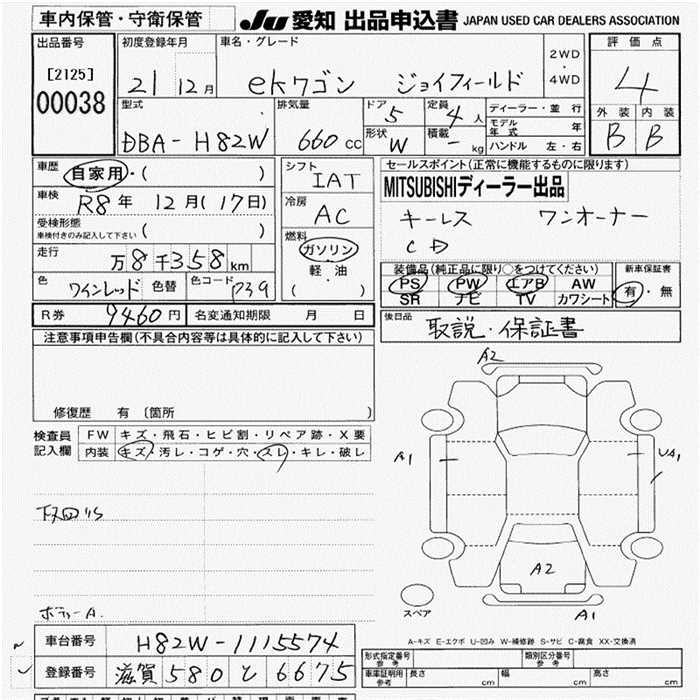 車内保管・守衛保管 JU 愛知 出品申込書 JAPAN USED CAR DEALERS ASSOCIATION
出品番号 初度登録年月 車名・グレード 2WD ・ 4WD 評価点
[2125] 21 12月 ekワゴン ジョイフィールド 4
00038
型式 排気量 ドア 5 定員 4人 ディーラー・並行 外装 内装
DBA-H82W 660cc 形状 W 積載 - kg モデル年式 年 B B
ハンドル 左・右
車歴 自家用・( ) シフト IAT セールスポイント(正常に機能するものに限ります)
車検 R8年 12月(17日) 冷房 AC MITSUBISHIディーラー出品
受検形態 車検付きのみ記入して下さい ( ) 燃料 キーレス ワンオーナー
走行 万8千358km ガソリン CD
軽・油 装備品(純正品に限り○をつけてください) 新車保証書
色 ワインレッド 色替 色コード P39 ( ・ ) PS PW エアB AW 有・無
SR ナビ TV カワシート
R券 9460円 名変通知期限 月 日 後日品 取説・保証書
注意事項申告欄(不具合内容等は具体的に記入して下さい)
修復歴 有 〔箇所 〕
検査員記入欄 FW キズ・飛石・ヒビ割・リペア跡・X要
内装 キズ・汚レ・コゲ・穴・スレ・キレ・破レ
A2
A1 UA1
A2
A1
スペア
下回りS
ボディーA.
A-キズ E-エクボ U-凹み W-補修跡 S-サビ C-腐食 XX-交換済
車台番号 H82W-1115574 形式指定番号 参考 類別区分番号 参考
登録番号 滋賀 580 と 6675 車庫証明用 参考 長さ 幅 高さ